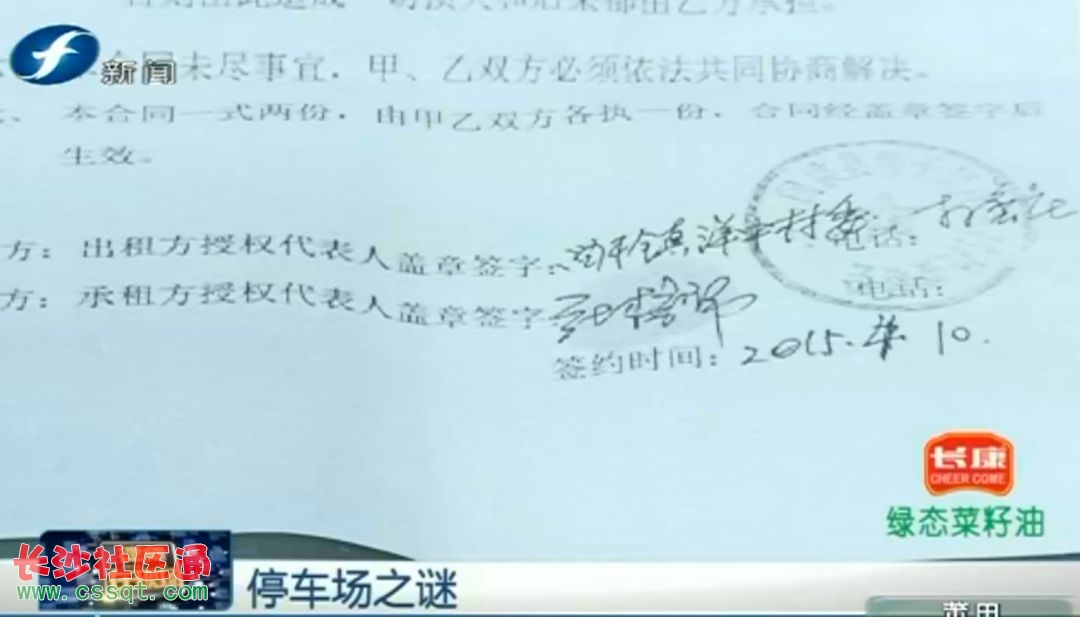 否则由此造成一切损失和后果都由乙方承担。
新闻
本合同未尽事宜，甲、乙双方必须依法共同协商解决。
本合同一式两份，由甲乙双方各执一份，合同经盖章签字后
生效。
方：出租方授权代表人盖章签字： 电话：
方：承租方授权代表人盖章签字： 电话：
签约时间：2015.4.10.
长康
CHEER COME
绿态菜籽油
长沙社区通
www.cssqt.com
停车场之谜
莆田